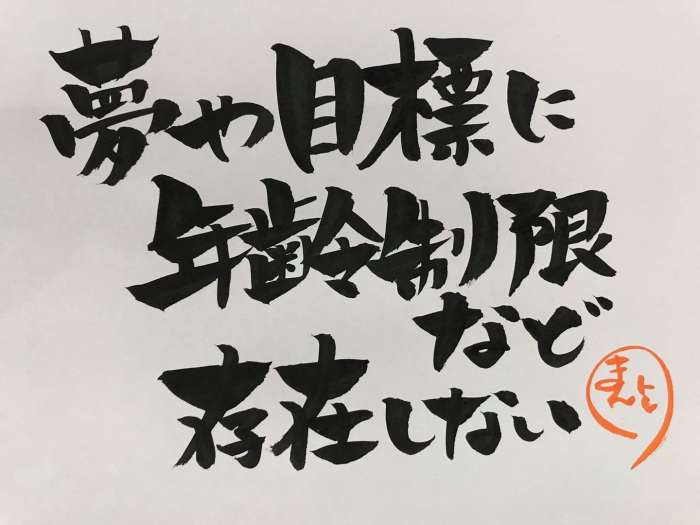 夢や目標に
年齢制限
など
存在しない